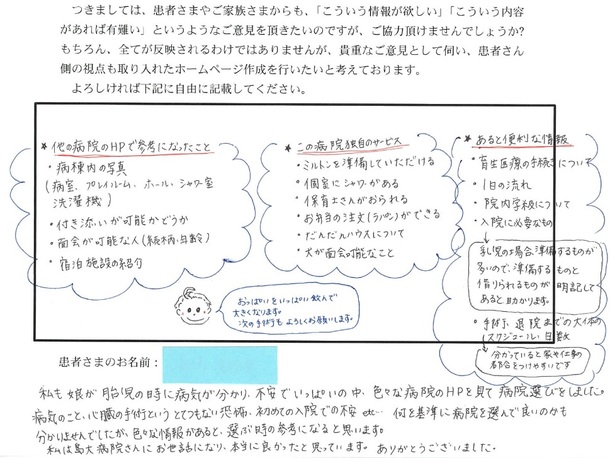 つきましては、患者さまやご家族さまからも、「こういう情報が欲しい」「こういう内容
があれば有難い」というようなご意見を頂きたいのですが、ご協力頂けませんでしょうか?
もちろん、全てが反映されるわけではありませんが、貴重なご意見として伺い、患者さん
側の視点も取り入れたホームページ作成を行いたいと考えております。
よろしければ下記に自由に記載してください。
★ 他の病院のHPで参考になったこと
・病棟内の写真
(病室、プレイルーム、ホール、シャワー室
洗濯機)
・付き添いが可能かどうか
・面会が可能な人(続柄、年齢)
・宿泊施設の紹介
★ この病院独自のサービス
・ミルトンを準備していただける
・個室にシャワーがある
・保育士さんがおられる
・お弁当の注文(ラパン)ができる
・だんだんハウスについて
・犬が面会可能なこと
★ あると便利な情報
・育生医療の手続きについて
・1日の流れ
・院内学級について
・入院に必要なもの
乳児の場合、準備するものが
多いので、準備するものと
借りられるものが明記して
あると助かります。
・手術、退院までの大体の
スケジュール、日数
分かっていると家や仕事の
都合をつけやすいです
おっぱいをいっぱい飲んで
大きくなります。
次の手術もよろしくお願いします。
患者さまのお名前:
私も娘が胎児の時に病気が分かり、不安でいっぱいの中、色々な病院のHPを見て病院選びをしました。
病気のこと、心臓の手術というとてつもない恐怖、初めての入院での不安 etc… 何を基準に病院を選んで良いのかも
分かりませんでしたが、色々な情報があると、選ぶ時の参考になると思います。
私は島大病院さんにお世話になり、本当に良かったと思っています。ありがとうございました。